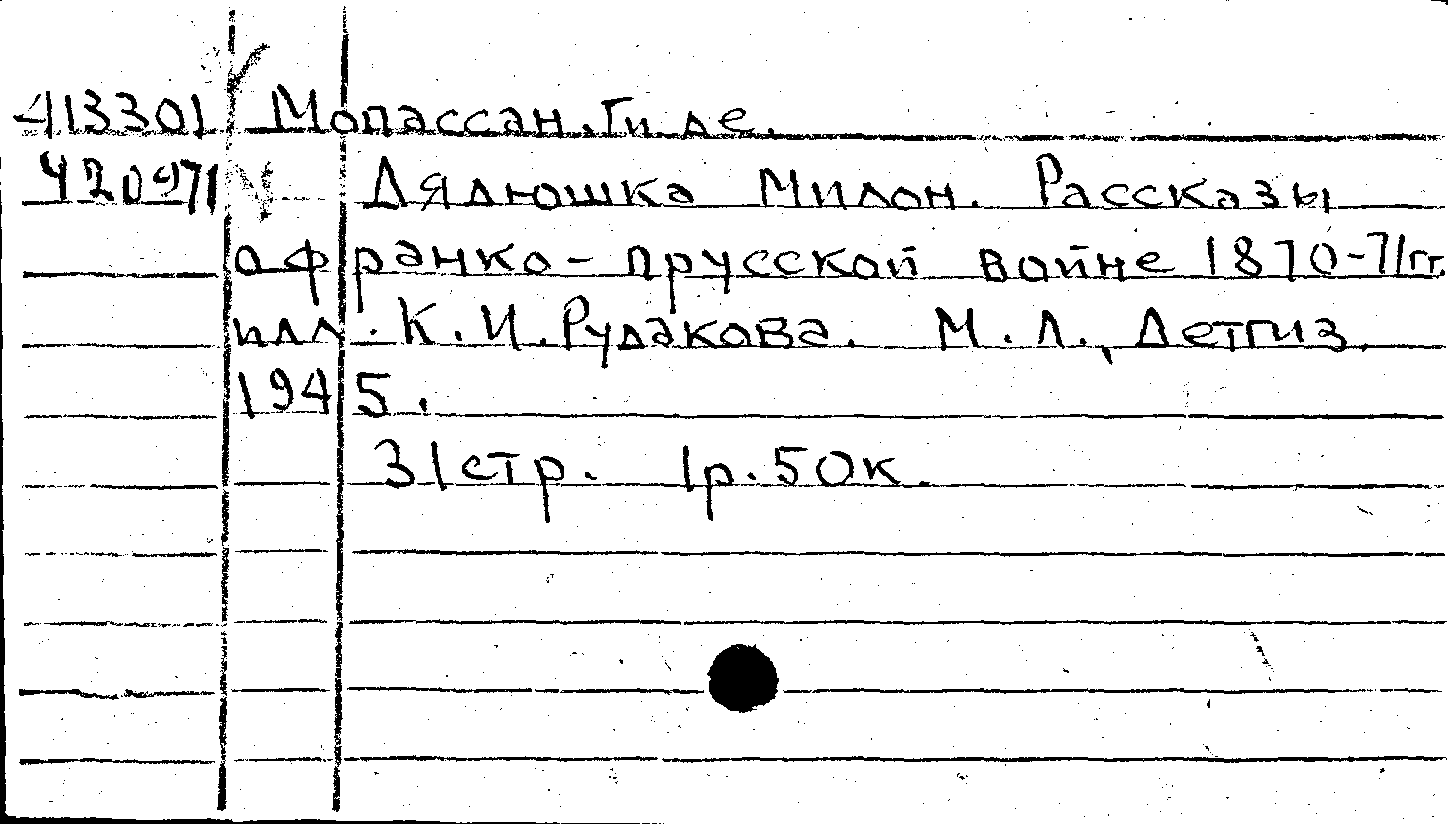 413301 Мопассан, Ги де.
420971 Дядюшка Милон. Рассказы
о франко-прусской войне 1870-71гг.
илл. К. И. Рудакова. М. Л., Детгиз,
1945.
31стр. 1р. 50к.